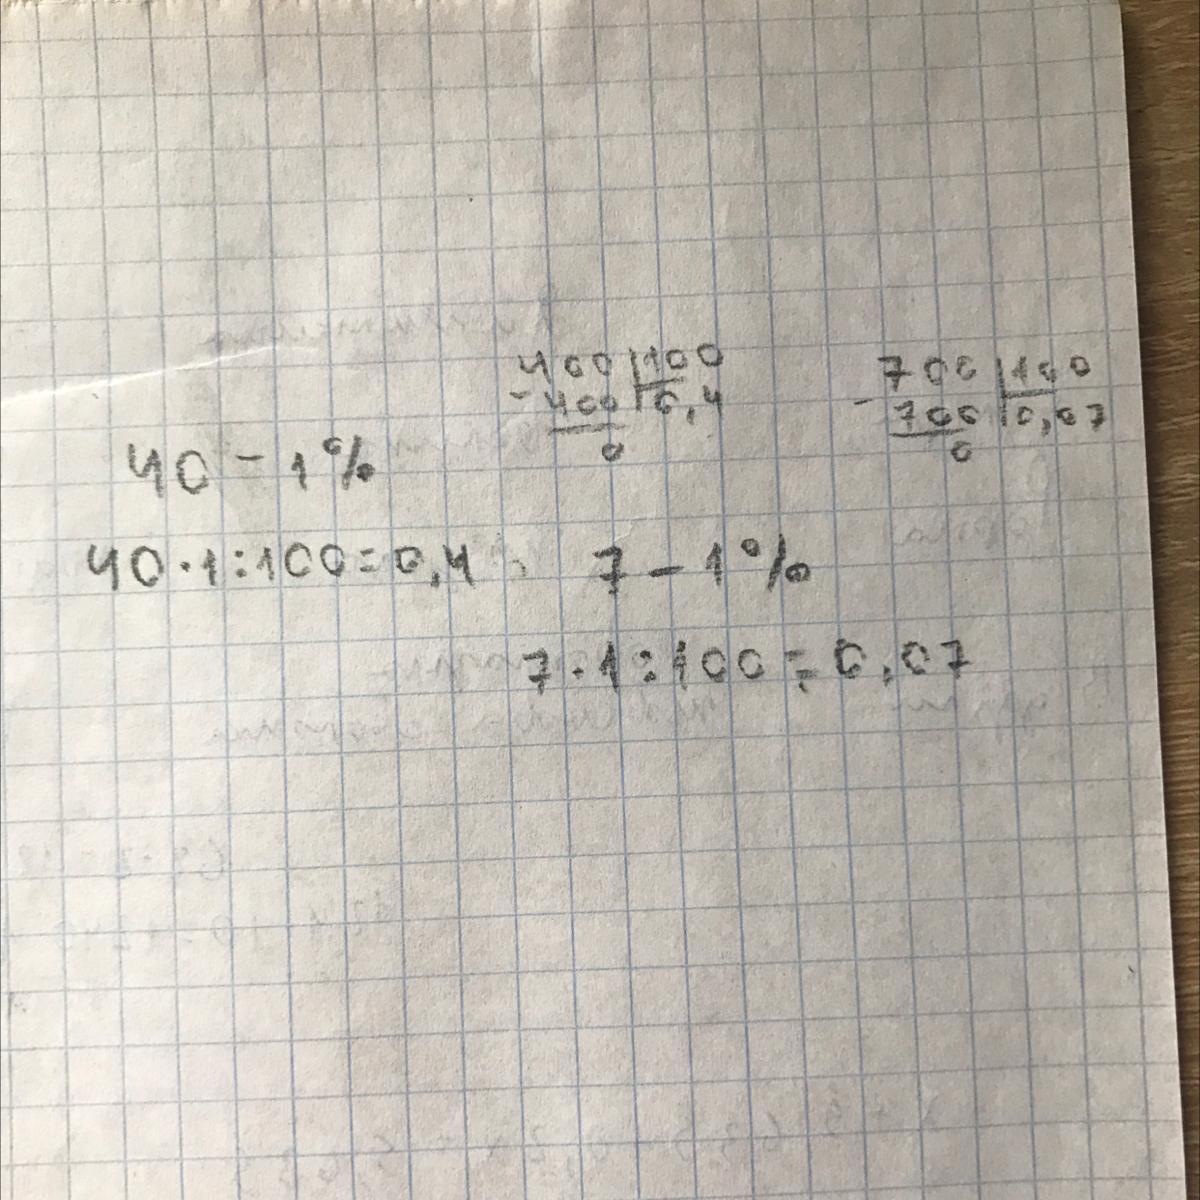 400 | 100
- 400 | 0,4
0
700 | 100
- 700 | 0,07
0
40 - 1%
40 · 1 : 100 = 0,4
7 - 1%
7 · 1 : 100 = 0,07